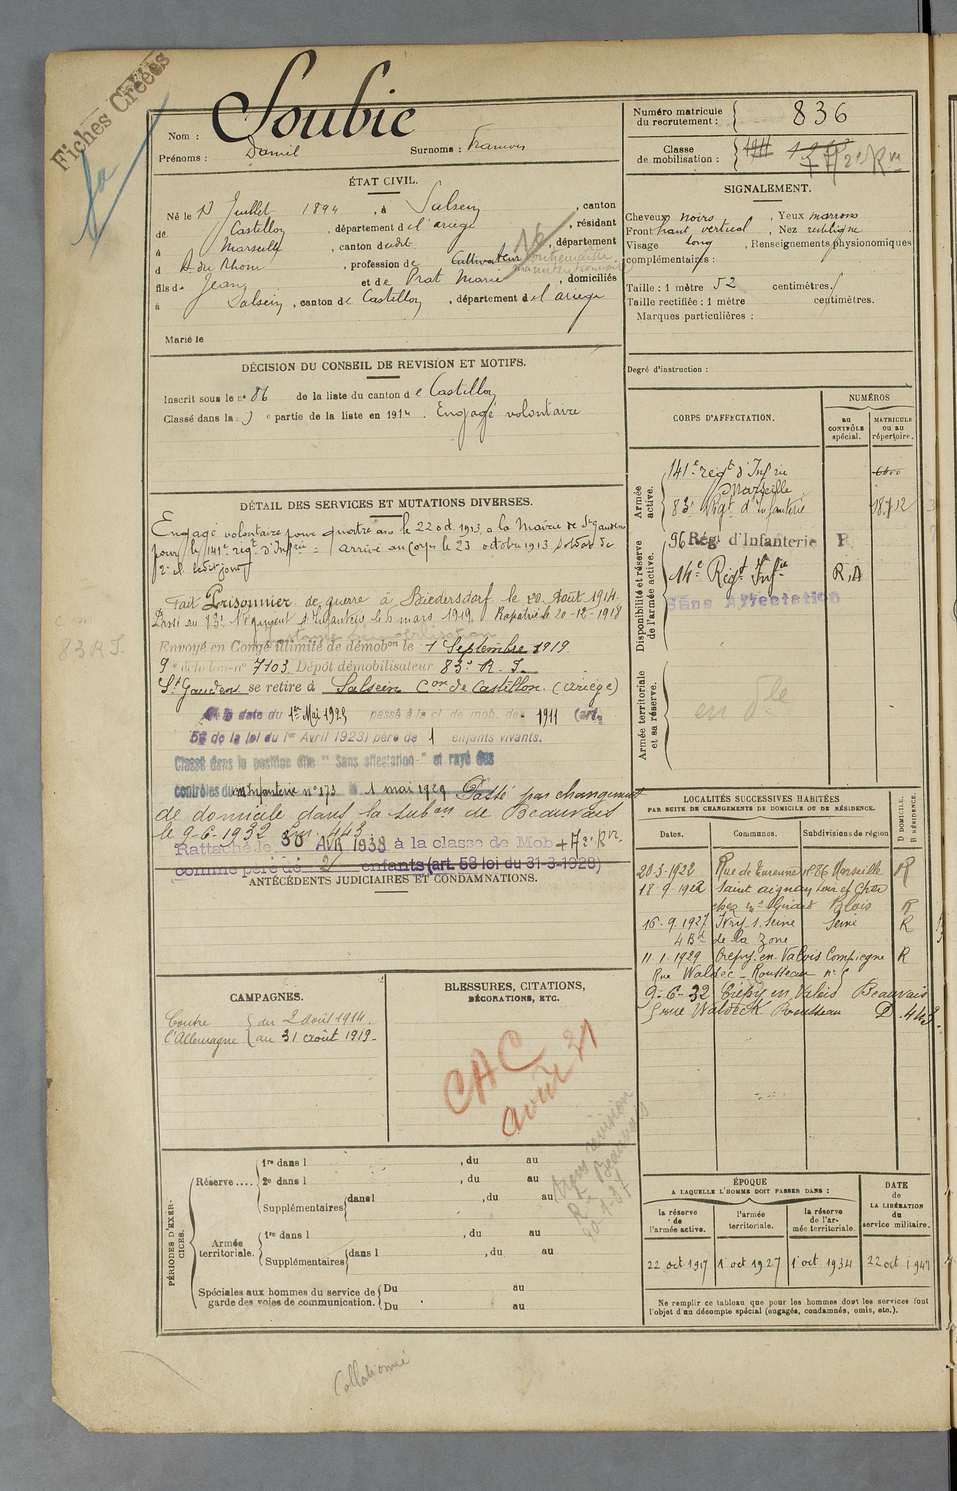 Fiches Créées
Nom : Soubie
Prénoms : Daniel Surnoms : François
Numéro matricule du recrutement : 836
Classe de mobilisation : 1911
ÉTAT CIVIL.
Né le 13 Juillet 1894, à Salsein, canton
de Castillon, département de l'ariege, résidant
à Marseille, canton dudit, département
d B. du Rhone, profession de Cultivateur
fils de Jean et de Prat Marie, domiciliés
à Salsein, canton de Castillon, département de l'ariege
Marié le
SIGNALEMENT.
Cheveux noirs, Yeux marrons
Front haut vertical, Nez rectiligne
Visage long, Renseignements physionomiques
complémentaires :
Taille : 1 mètre 52 centimètres.
Taille rectifiée : 1 mètre centimètres.
Marques particulières :
Degré d'instruction :
DÉCISION DU CONSEIL DE REVISION ET MOTIFS.
Inscrit sous le n° 86 de la liste du canton de Castillon
Classé dans la 3e partie de la liste en 1914. Engagé volontaire
DÉTAIL DES SERVICES ET MUTATIONS DIVERSES.
Engagé volontaire pour quatre ans le 22 oct. 1913, a la Mairie de St Gaudens
pour le 141e régt d'Infrie = arrivé au Corps le 23 octobre 1913 soldat de
2e cl. ledit jour
Fait Prisonnier de guerre à Biedersdorf le 20 Août 1914.
Passé au 83e Régiment d'Infanterie le 6 mars 1919. Rapatrié le 20-12-1918
Envoyé en Congé illimité de démobon le 1 Septembre 1919
9e échelon n° 7103 Dépôt démobilisateur 83e R.I.
St Gaudens se retire à Salsein Con de Castillon. (Ariège)
A la date du 1er Mai 1929 passé à la cl. de mob. de 1911 (art.
58 de la loi du 1er Avril 1923) père de 1 enfants vivants.
Classé dans la position dite "Sans affectation" et rayé des
contrôles du Infanterie n° 173 le 1 mai 1929 Passé par changement
de domicile dans la subon de Beauvais
le 9-6-1932 443
Rattaché le 30 AVR 1938 à la classe de Mob
comme père de 2 enfants (art. 58 loi du 31-3-1928)
ANTÉCÉDENTS JUDICIAIRES ET CONDAMNATIONS.
CORPS D'AFFECTATION.
NUMÉROS
au CONTRÔLE spécial.
MATRICULE ou au répertoire.
Armée active.
141e régt d'Infrie
Marseille
83e Régt d'Infanterie 18.712
Disponibilité et réserve de l'armée active.
96 Régt d'Infanterie R
14e Régt Infie R.A
Sans Affectation
Armée territoriale et sa réserve.
83 R.I.
LOCALITÉS SUCCESSIVES HABITÉES
PAR SUITE DE CHANGEMENTS DE DOMICILE OU DE RÉSIDENCE.
Dates. Communes. Subdivisions de région D DOMICILE. R RÉSIDENCE.
20-3-1922 Rue de Turenne n° 86 Marseille R
18-9-1922 Saint aignan Loir et Cher
chez Girard Blois R
16-9-1927 Ivry s. Seine Seine R
4 Bd de la Zone
11-1-1929 Crépy en Valois Compiegne R
Rue Waldec-Rousseau n° 5
9-6-32 Crépy en Valois Beauvais
5 rue Waldeck Rousseau D.443
CAMPAGNES.
Contre l'Allemagne { du 2 Août 1914.
au 31 Août 1919.
BLESSURES, CITATIONS,
DÉCORATIONS, ETC.
CAC
août 31
Beauvais
PÉRIODES D'EXERCICES.
Réserve.... 1re dans l , du au
2e dans l , du au
Supplémentaires dans l , du au
Armée territoriale. 1re dans l , du au
Supplémentaires dans l , du au
Spéciales aux hommes du service de Du au
garde des voies de communication. Du au
ÉPOQUE
A LAQUELLE L'HOMME DOIT PASSER DANS :
la réserve de l'armée active. l'armée territoriale. la réserve de l'armée territoriale.
DATE de LA LIBÉRATION du service militaire.
22 oct 1917 1 oct 1927 1 oct 1934 22 oct 1941
Ne remplir ce tableau que pour les hommes dont les services font
l'objet d'un décompte spécial (engagés, condamnés, omis, etc.).
Collationné